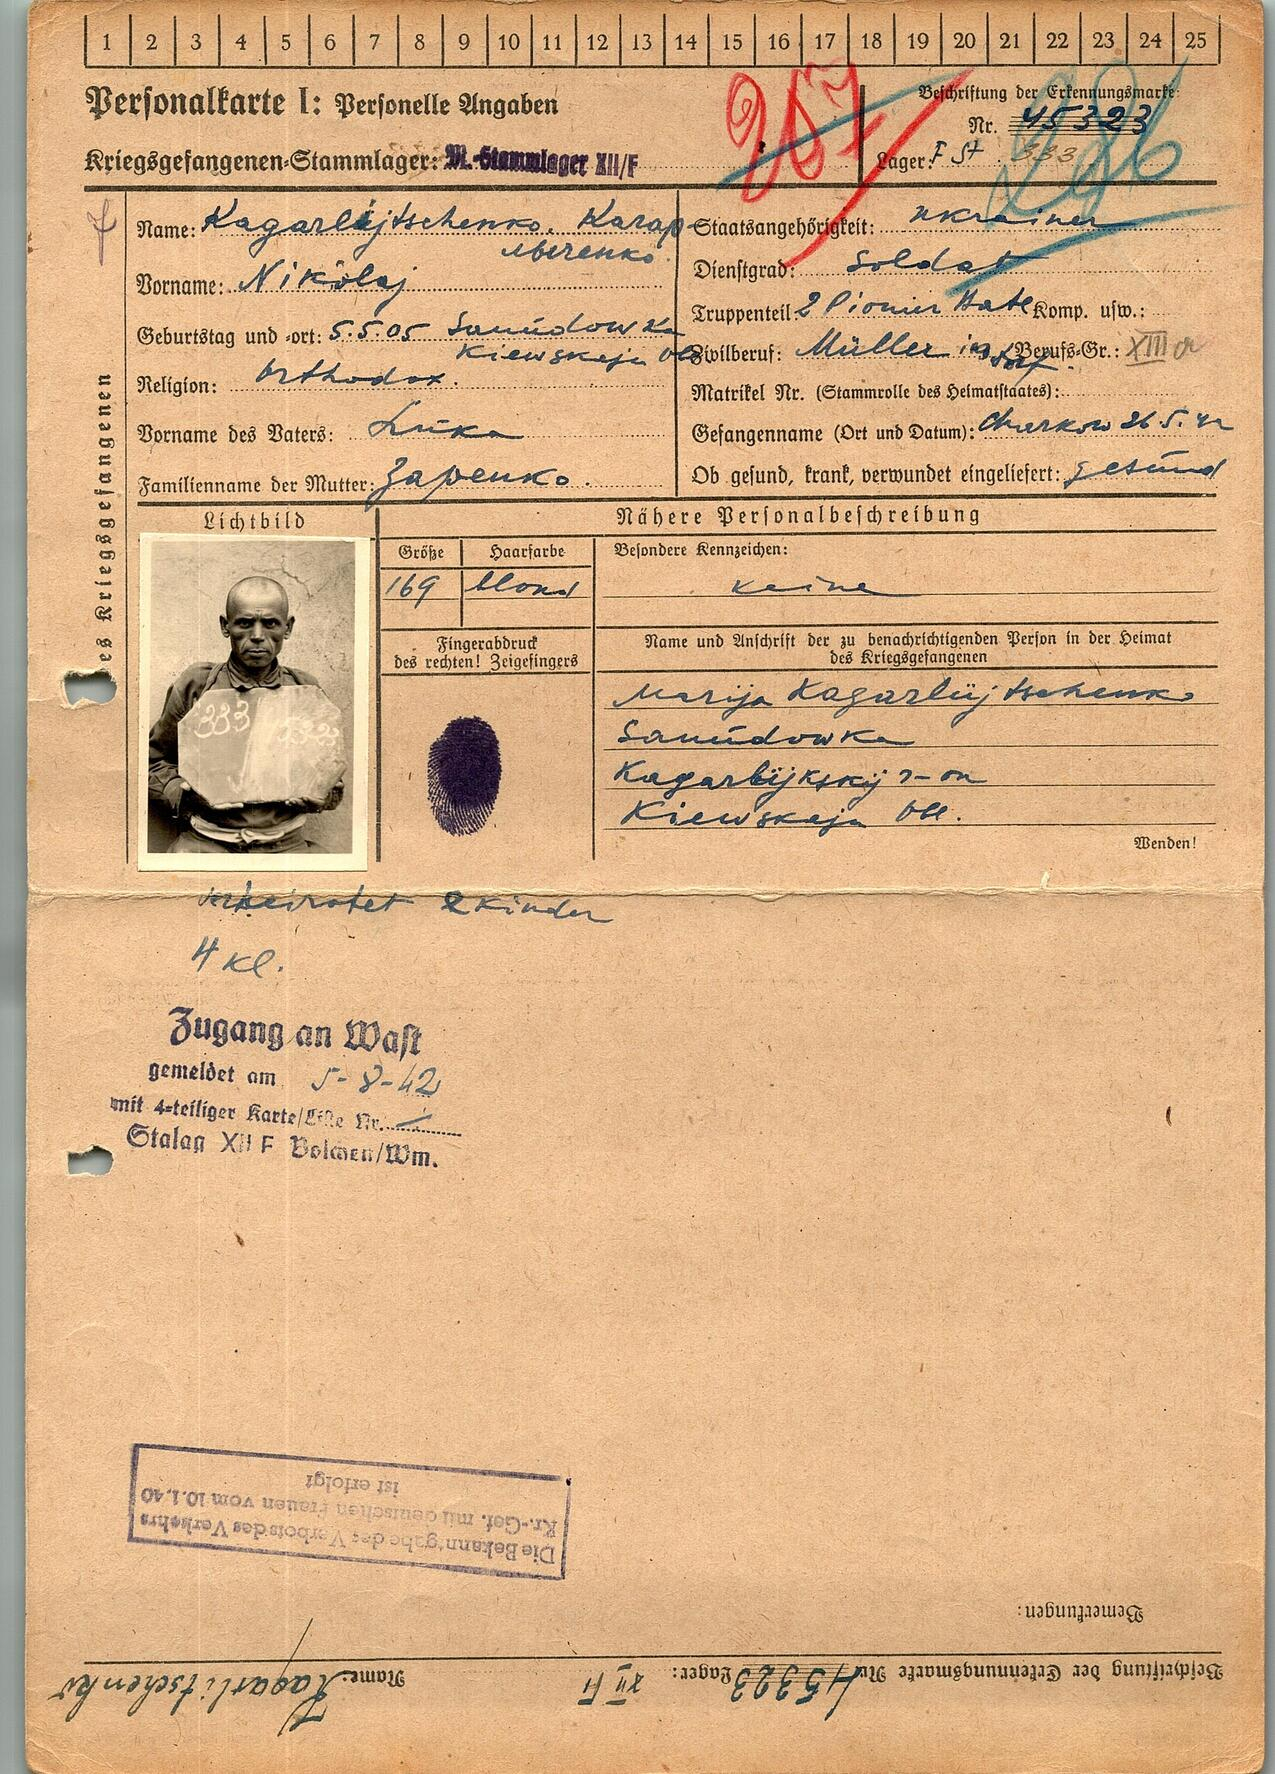 1 2 3 4 5 6 7 8 9 10 11 12 13 14 15 16 17 18 19 20 21 22 23 24 25
Personalkarte I: Personelle Angaben
Beschriftung der Erkennungsmarke:
Nr. 45323
Kriegsgefangenen-Stammlager: M.-Stammlager XII/F
Lager: F St. 333
207
286
Name: Kagarlijtschenko. Карар-
личенко.
Vorname: Nikolaj
Geburtstag und -ort: 5.5.05 Samudowka
Kiewskaja Obl
Religion: Orthodox.
Vorname des Vaters: Luka
Familienname der Mutter: Заренко.
Staatsangehörigkeit: Ukrainer
Dienstgrad: Soldat
Truppenteil: 2 Pionier Komp. usw.:
Zivilberuf: Müller Berufs-Gr.: XIII a
Matrikel Nr. (Stammrolle des Heimatstaates):
Gefangenname (Ort und Datum): Charkow 26.5.42
Ob gesund, krank, verwundet eingeliefert: gesund
des Kriegsgefangenen
Lichtbild
333 45323
Nähere Personalbeschreibung
Größe Haarfarbe Besondere Kennzeichen:
169 blond keine
Fingerabdruck
des rechten! Zeigefingers
Name und Anschrift der zu benachrichtigenden Person in der Heimat
des Kriegsgefangenen
Marija Kagarlijtschenko
Samudowka
Kagarlijkskij r-on
Kiewskaja Obl.
Wenden!
verheiratet 2 Kinder
4 Kl.
Zugang an Wast
gemeldet am 5-8-42
mit 4-teiliger Karte/Liste Nr.
Stalag XII F Bolchen/Wm.
Die Bekanntgabe des Verbots des Verkehrs
Kr.-Gef. mit deutschen Frauen vom 10.1.40
ist erfolgt
Bemerkungen:
Beschriftung der Erkennungsmarke Nr. 45323 Lager: XII F Name: Kagarlitschenko